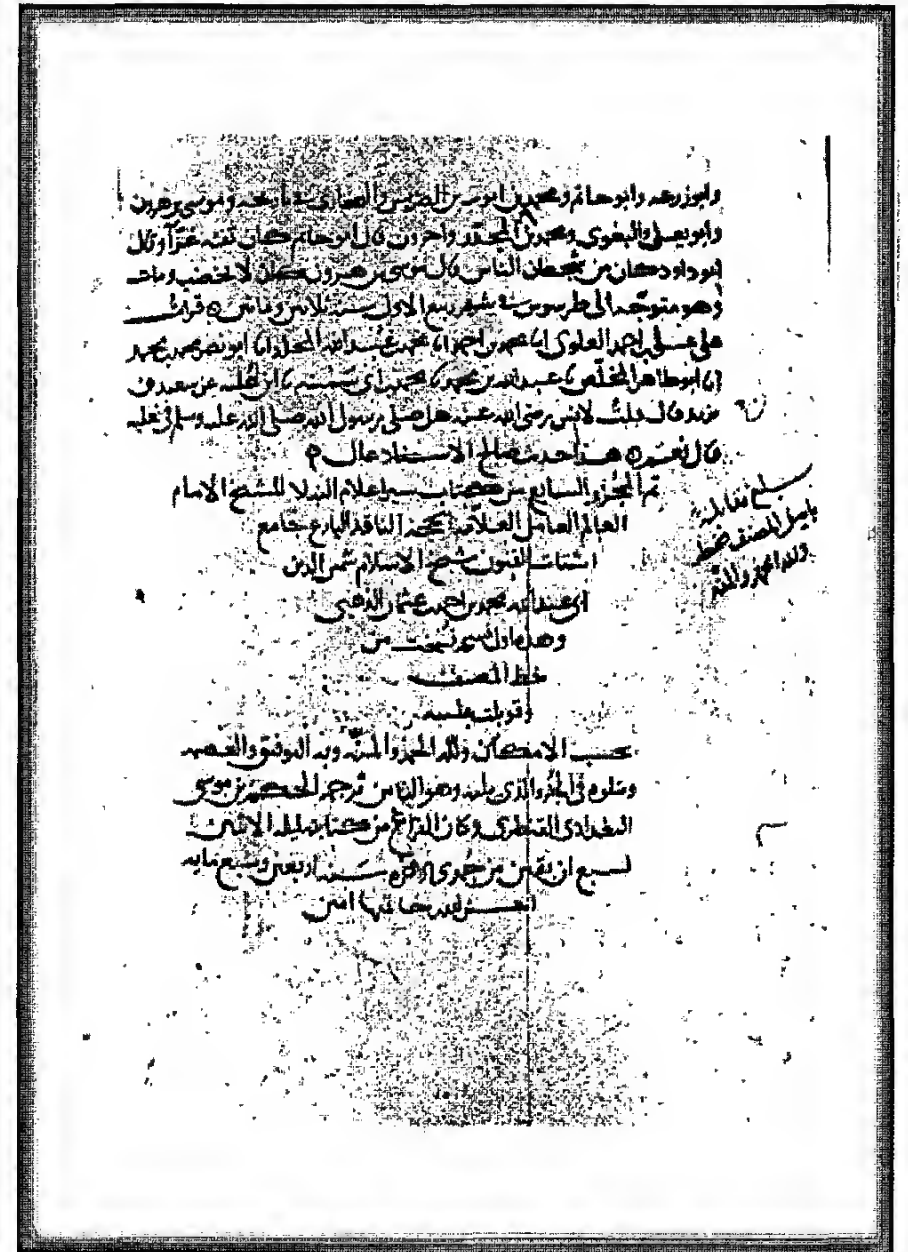 وابو زرعه وابو حاتم ومحمد بن ايوب بن الضريس والبخاري في تاريخه وموسى بن هرون
وابو يعلى والبغوي ومحمد بن المجدر واخرون قال ابو حاتم كان ثقه خيرا وقال
ابو داود كان من الناس قال موسى بن هرون كان لا يخضب ومات
وهو متوجه الى طرسوس في شهر ربيع الاول سنة ثلاثين وماتين قرات
على علي بن احمد العلوي انا محمد بن احمد انا محمد بن عبيد الله المجلد انا ابو نصر محمد بن محمد
انا ابو طاهر المخلص نا عبد الله بن محمد نا محمد بن ابي سمينه نا ابن عليه عن سعيد بن
يزيد قال قلت لانس رضي الله عنه هل صلى رسول الله صلى الله عليه وسلم في نعليه
قال نعم هذا حديث صالح الاسناد عال
تم الجزو السابع من كتاب سير اعلام النبلا للشيخ الامام
العالم العامل العلامة الحجه الناقد البارع جامع
اشتات الفنون شيخ الاسلام شمس الدين
ابي عبد الله محمد بن احمد بن عثمان الذهبي
وهذه اول نسخه نسخت من
خط المصنف
وقوبلت عليه
بحسب الامكان ولله الحمد والمنه وبه التوفيق والعصمه
ويتلوه في الجزو الذي يليه وهو الثامن ترجمة الحكم بن موسى
البغدادي القنطري وكان الفراغ من كتابته ليلة الاثنين
لسبع ان بقين من جمدى الاخره سنة اربعين وسبع مايه
احسن الله خاتمتها امين
بلغ مقابلة
باصل المصنف بخطه
ولله الحمد والمنه